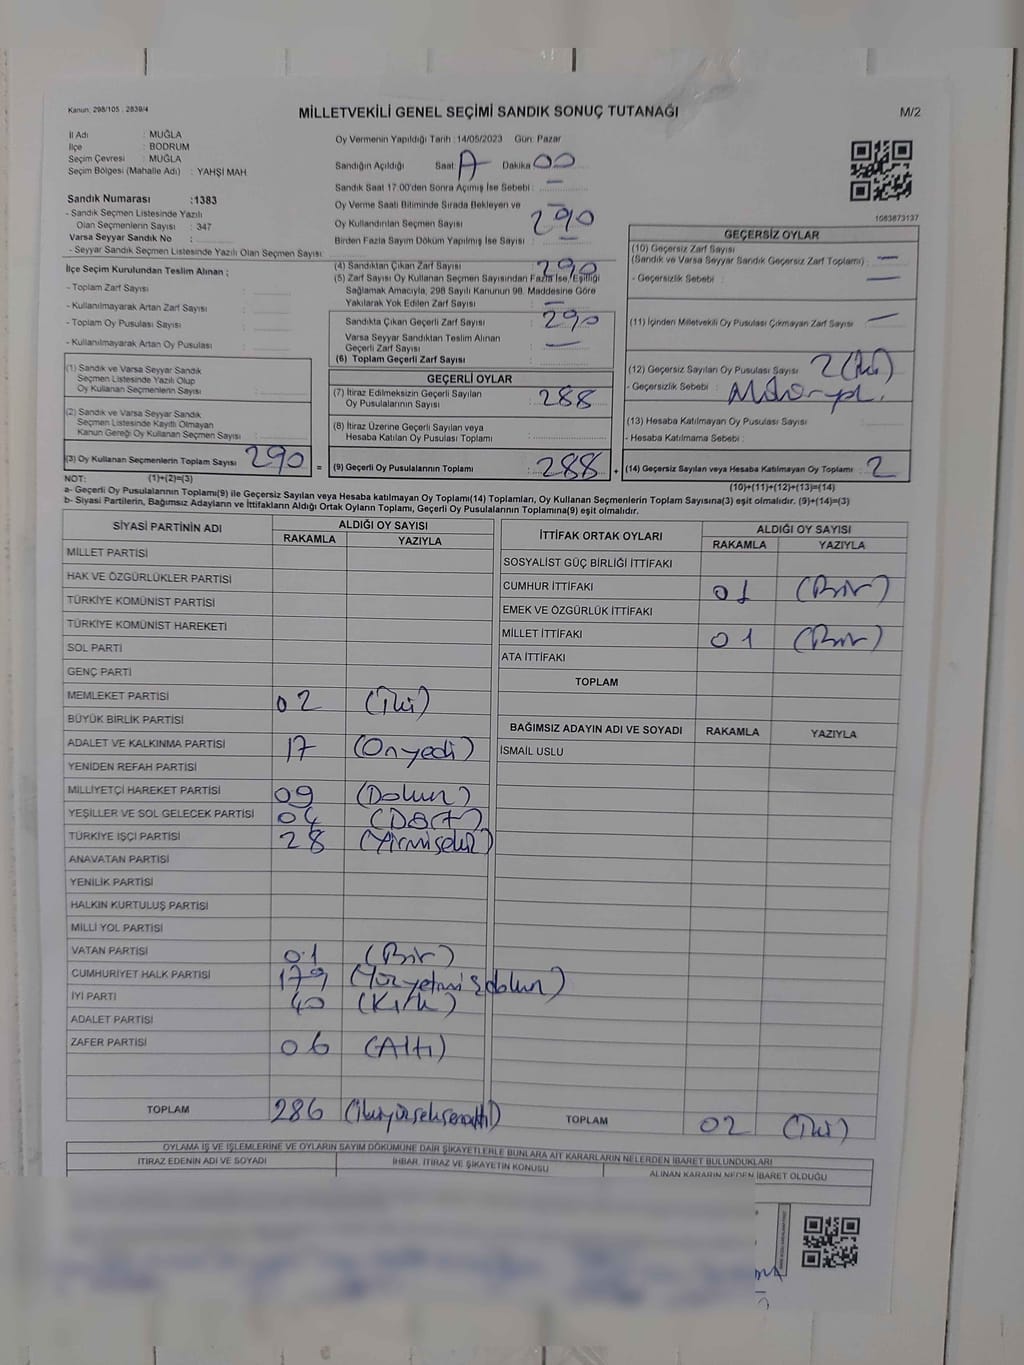 Kanun: 298/105 , 2839/4
MİLLETVEKİLİ GENEL SEÇİMİ SANDIK SONUÇ TUTANAĞI
M/2
İl Adı : MUĞLA
İlçe : BODRUM
Seçim Çevresi : MUĞLA
Seçim Bölgesi (Mahalle Adı) : YAHŞİ MAH
Sandık Numarası :1383
- Sandık Seçmen Listesinde Yazılı
Olan Seçmenlerin Sayısı : 347
Varsa Seyyar Sandık No :
- Seyyar Sandık Seçmen Listesinde Yazılı Olan Seçmen Sayısı:
Oy Vermenin Yapıldığı Tarih :14/05/2023 Gün: Pazar
Sandığın Açıldığı Saat: Dakika 00
Sandık Saat 17.00'den Sonra Açımış İse Sebebi : —
Oy Verme Saati Bitiminde Sırada Bekleyen ve —
Oy Kullandırılan Seçmen Sayısı : 290
Birden Fazla Sayım Döküm Yapılmış İse Sayısı : —
1083873137
İlçe Seçim Kurulundan Teslim Alınan ;
- Toplam Zarf Sayısı :
- Kullanılmayarak Artan Zarf Sayısı :
- Toplam Oy Pusulası Sayısı :
- Kullanılmayarak Artan Oy Pusulası :
(1) Sandık ve Varsa Seyyar Sandık
Seçmen Listesinde Yazılı Olup
Oy Kullanan Seçmenlerin Sayısı :
(2) Sandık ve Varsa Seyyar Sandık
Seçmen Listesinde Kayıtlı Olmayan
Kanun Gereği Oy Kullanan Seçmen Sayısı :
(3) Oy Kullanan Seçmenlerin Toplam Sayısı 290 =
(4) Sandıktan Çıkan Zarf Sayısı : 290
(5) Zarf Sayısı Oy Kullanan Seçmen Sayısından Fazla İse, Eşitliği
Sağlamak Amacıyla, 298 Sayılı Kanunun 98. Maddesine Göre
Yakılarak Yok Edilen Zarf Sayısı : —
Sandıkta Çıkan Geçerli Zarf Sayısı : 290
Varsa Seyyar Sandıktan Teslim Alınan
Geçerli Zarf Sayısı : —
(6) Toplam Geçerli Zarf Sayısı :
GEÇERLİ OYLAR
(7) İtiraz Edilmeksizin Geçerli Sayılan
Oy Pusulalarının Sayısı : 288
(8) İtiraz Üzerine Geçerli Sayılan veya
Hesaba Katılan Oy Pusulası Toplamı :
(9) Geçerli Oy Pusulalarının Toplamı : 288 +
GEÇERSİZ OYLAR
(10) Geçersiz Zarf Sayısı
(Sandık ve Varsa Seyyar Sandık Geçersiz Zarf Toplamı) : —
- Geçersizlik Sebebi : —
(11) İçinden Milletvekili Oy Pusulası Çıkmayan Zarf Sayısı : —
(12) Geçersiz Sayılan Oy Pusulası Sayısı : 2 (iki)
- Geçersizlik Sebebi :
(13) Hesaba Katılmayan Oy Pusulası Sayısı :
- Hesaba Katılmama Sebebi :
(14) Geçersiz Sayılan veya Hesaba Katılmayan Oy Toplamı : 2
NOT: (1)+(2)=(3)
(10)+(11)+(12)+(13)=(14)
a- Geçerli Oy Pusulalarının Toplamı(9) ile Geçersiz Sayılan veya Hesaba katılmayan Oy Toplamı(14) Toplamları, Oy Kullanan Seçmenlerin Toplam Sayısına(3) eşit olmalıdır. (9)+(14)=(3)
b- Siyasi Partilerin, Bağımsız Adayların ve İttifakların Aldığı Ortak Oyların Toplamı, Geçerli Oy Pusulalarının Toplamına(9) eşit olmalıdır.
SİYASİ PARTİNİN ADI ALDIĞI OY SAYISI
RAKAMLA YAZIYLA
MİLLET PARTİSİ
HAK VE ÖZGÜRLÜKLER PARTİSİ
TÜRKİYE KOMÜNİST PARTİSİ
TÜRKİYE KOMÜNİST HAREKETİ
SOL PARTİ
GENÇ PARTİ
MEMLEKET PARTİSİ 02 (İki)
BÜYÜK BİRLİK PARTİSİ
ADALET VE KALKINMA PARTİSİ 17 (Onyedi)
YENİDEN REFAH PARTİSİ
MİLLİYETÇİ HAREKET PARTİSİ 09 (Dokuz)
YEŞİLLER VE SOL GELECEK PARTİSİ 04 (Dört)
TÜRKİYE İŞÇİ PARTİSİ 28 (Yirmisekiz)
ANAVATAN PARTİSİ
YENİLİK PARTİSİ
HALKIN KURTULUŞ PARTİSİ
MİLLİ YOL PARTİSİ
VATAN PARTİSİ 01 (Bir)
CUMHURİYET HALK PARTİSİ 179 (Yüzyetmişdokuz)
İYİ PARTİ 40 (Kırk)
ADALET PARTİSİ
ZAFER PARTİSİ 06 (Altı)
TOPLAM 286 (ikiyüzseksenaltı)
İTTİFAK ORTAK OYLARI ALDIĞI OY SAYISI
RAKAMLA YAZIYLA
SOSYALİST GÜÇ BİRLİĞİ İTTİFAKI
CUMHUR İTTİFAKI 01 (Bir)
EMEK VE ÖZGÜRLÜK İTTİFAKI
MİLLET İTTİFAKI 01 (Bir)
ATA İTTİFAKI
TOPLAM
BAĞIMSIZ ADAYIN ADI VE SOYADI RAKAMLA YAZIYLA
İSMAİL USLU
TOPLAM 02 (İki)
OYLAMA İŞ VE İŞLEMLERİNE VE OYLARIN SAYIM DÖKÜMÜNE DAİR ŞİKAYETLERLE BUNLARA AİT KARARLARIN NELERDEN İBARET BULUNDUKLARI
İTİRAZ EDENİN ADI VE SOYADI İHBAR, İTİRAZ VE ŞİKAYETİN KONUSU ALINAN KARARIN NEDEN İBARET OLDUĞU